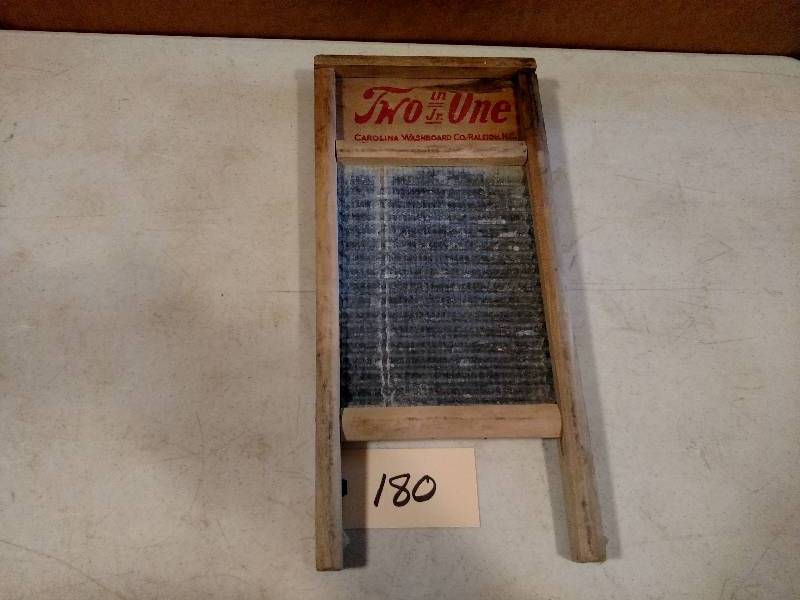 Two in Jr. One
CAROLINA WASHBOARD CO.-RALEIGH, N.C.
180